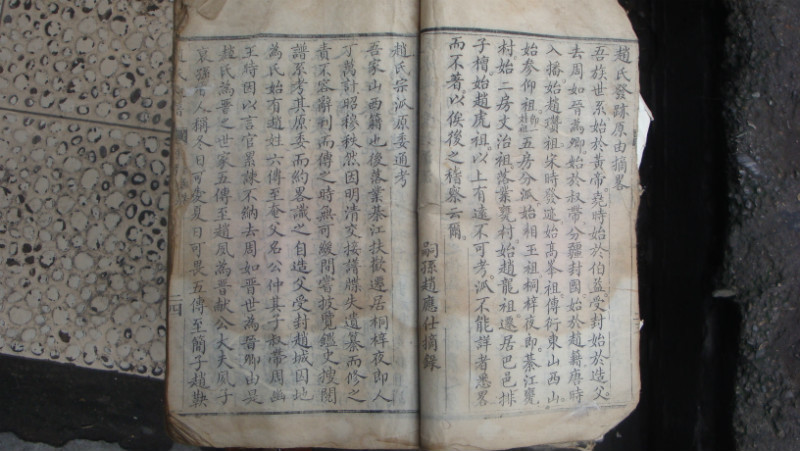 趙氏發跡原由摘畧
吾族世系始於黃帝堯時始於伯益受封始於造父
去周如晉為卿始於叔帶分疆封國始於趙籍唐時
入播始趙瓚祖宋時發迹始高峯祖傳衍東山西山
始參仰祖五房分派始相王祖桐梓夜郎綦江
村始二房文治祖落業村始趙龍祖遷居巴邑排
子檀始趙虎祖以上有遠不可考派不能詳者悉畧
而不著以俟後之稽察云爾
嗣孫趙應仕摘錄
趙氏宗派原委通考
吾家山西籍也後落業綦江扶歡遷居桐梓夜郎人
丁萬計昭穆秩然因明清交接譜牒失遺纂而修之
責不容辭刊而傳之時無可緩間嘗披覽鑑史搜閱
譜系考其原委而約畧識之自造父受封趙城因地
為氏始有趙姓六傳至奄父名公仲其子叔帶周幽
王時因以言官累諫不納去周如晉世為晉卿由是
趙氏為晉之世家五傳至趙夙為晉献公大夫夙子
衰人稱冬日可愛夏日可畏五傳至簡子趙鞅